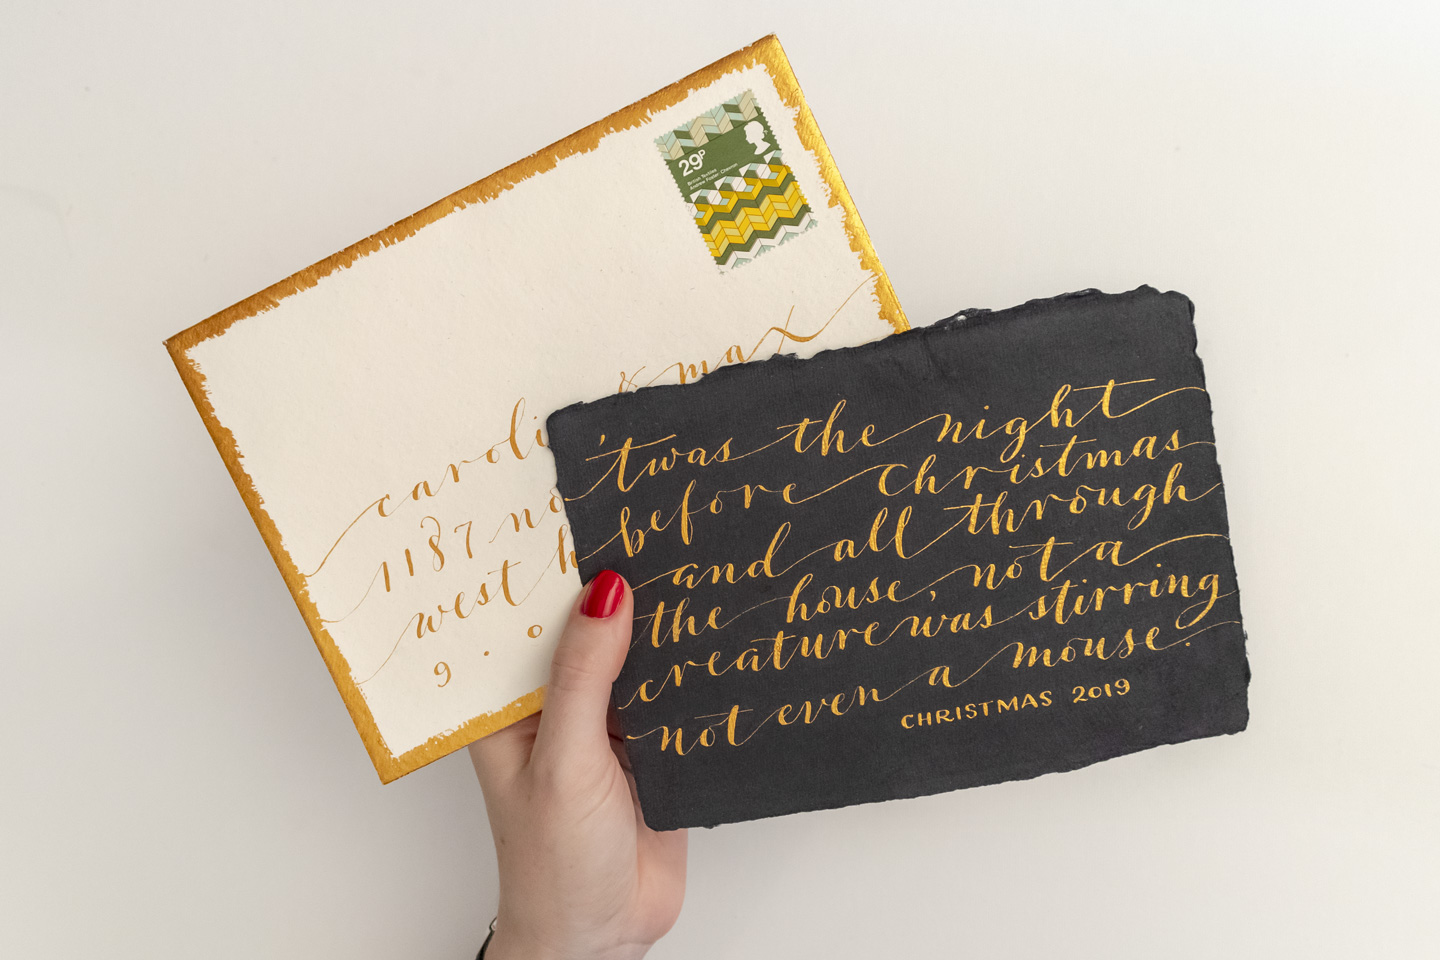 29P
British Textiles
& max
1187
west
9 . 0
'twas the night
before Christmas
and all through
the house, not a
creature was stirring
not even a mouse.
CHRISTMAS 2019